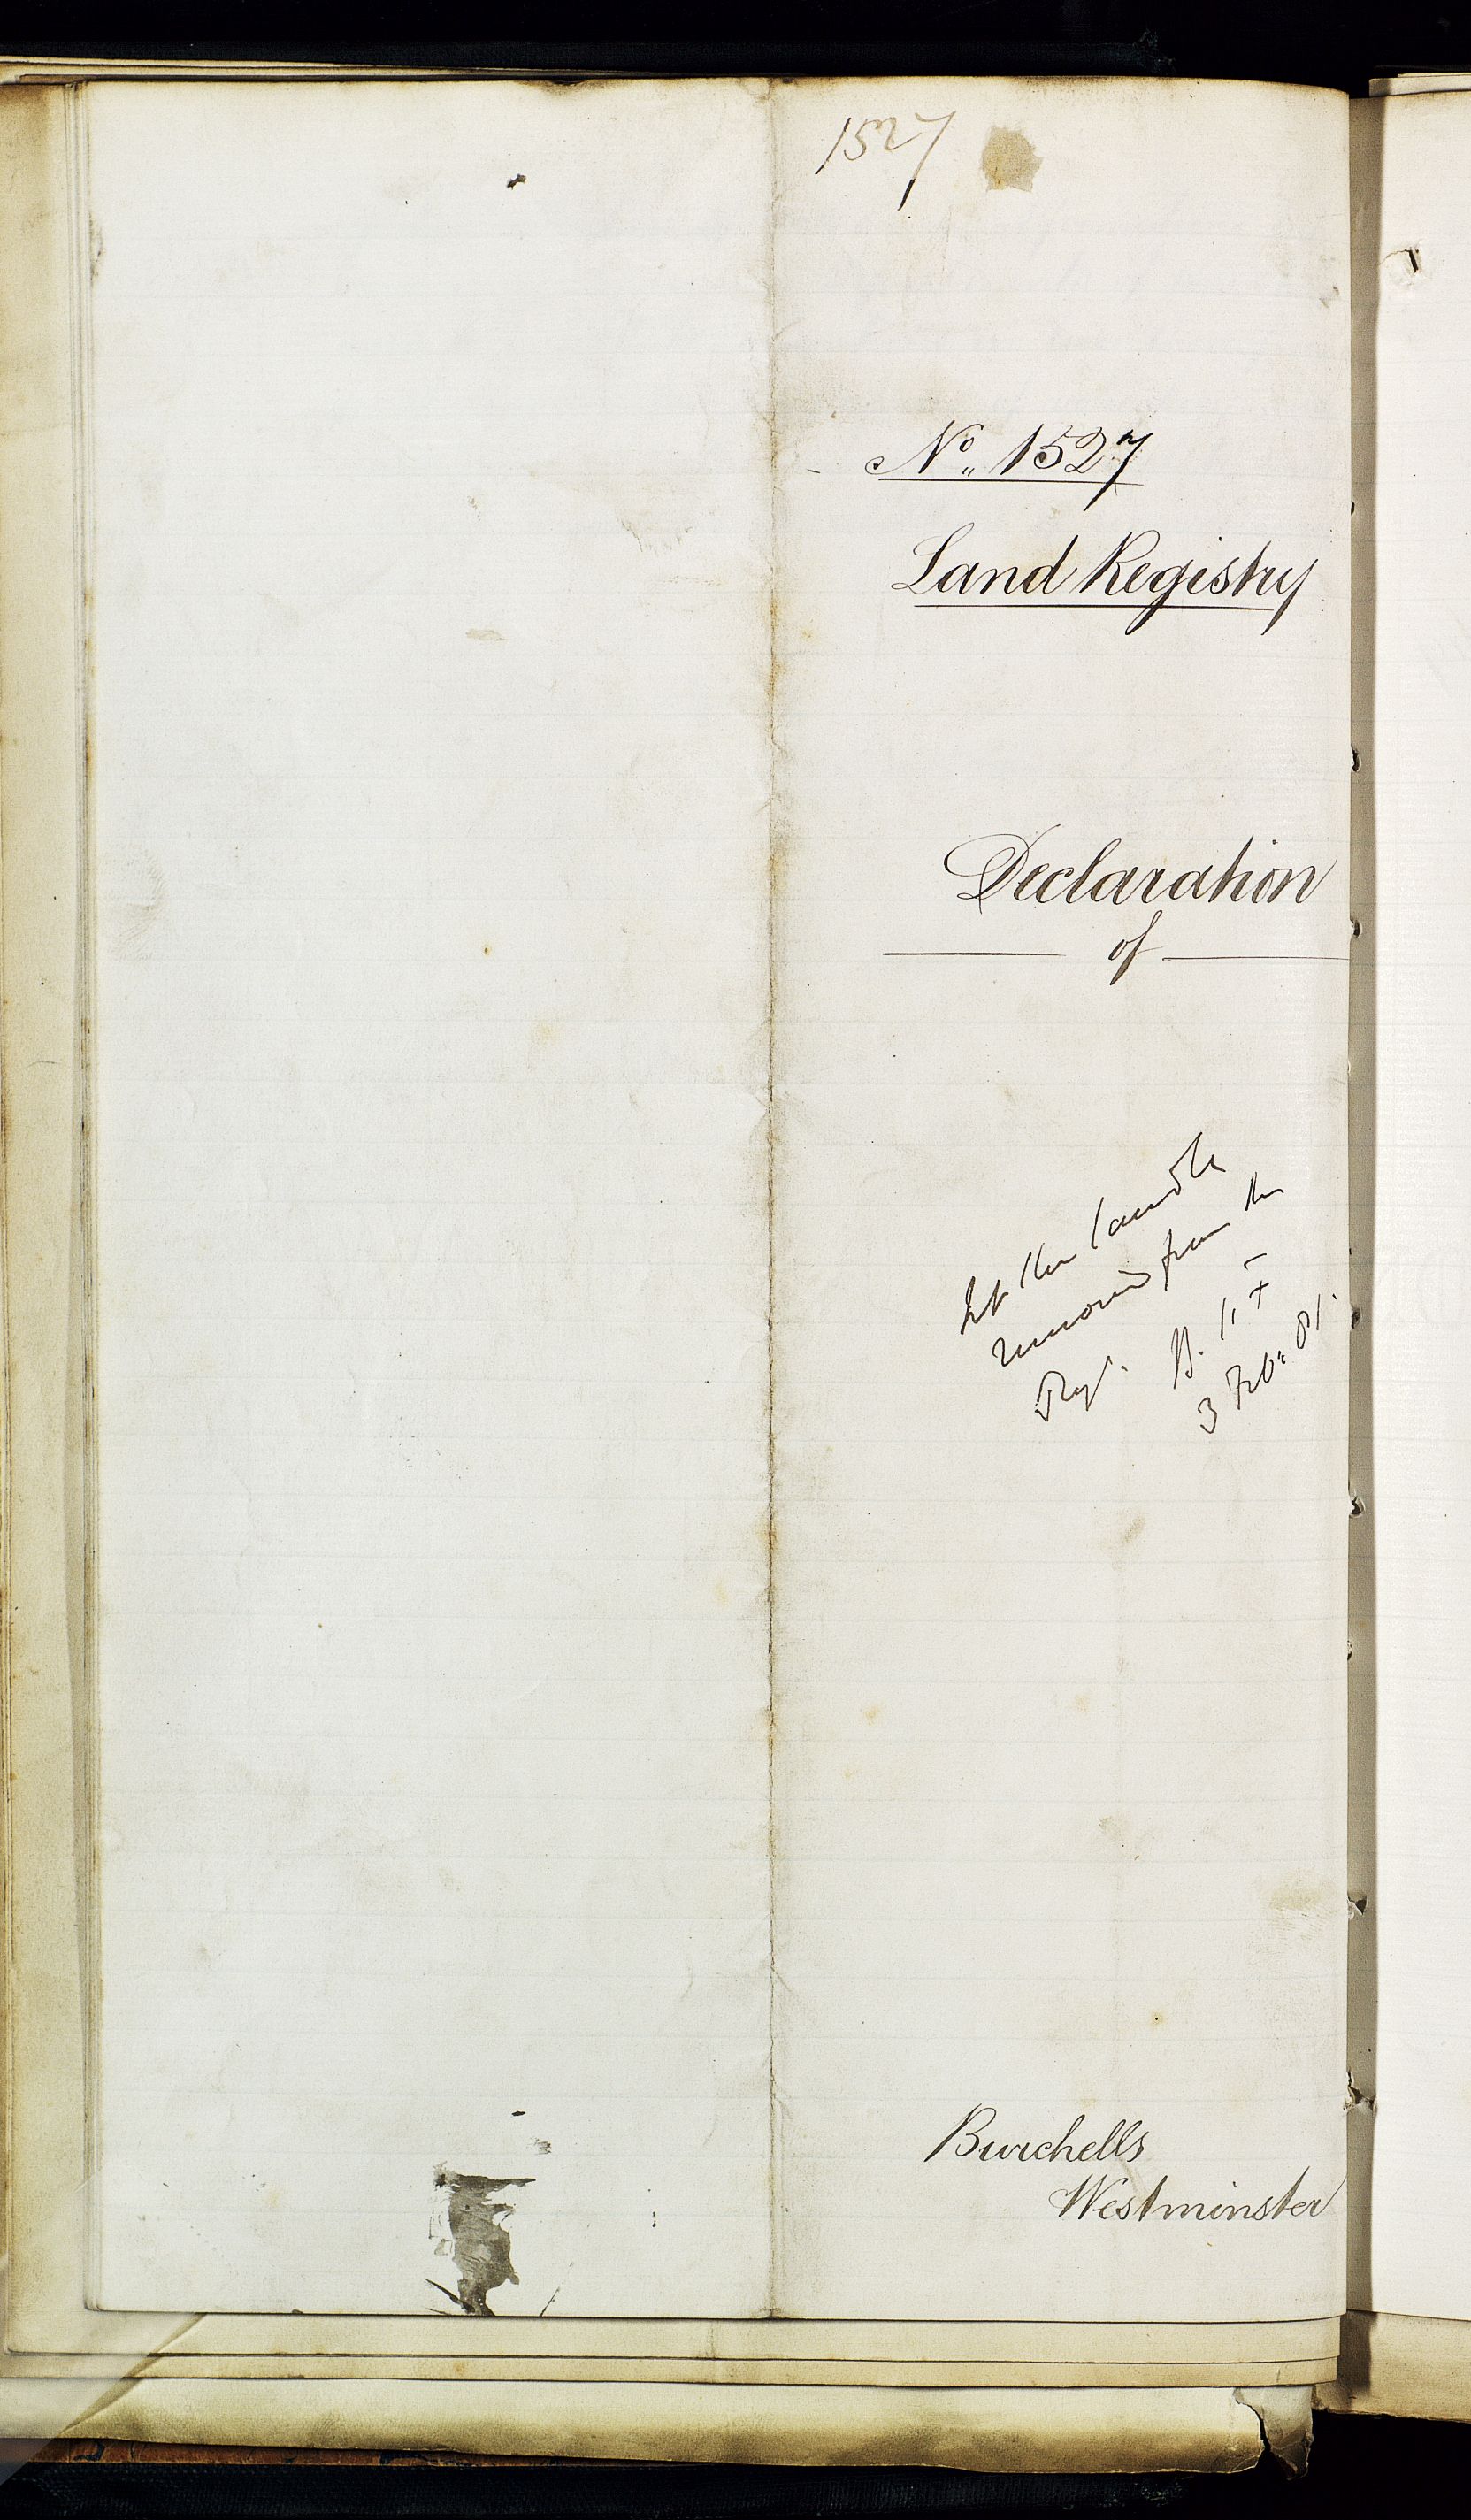 1527
No. 1527
Land Registry
Declaration
of
Let the land be
removed from the
Regr.
3 Feb. 81.
Burchells
Westminster